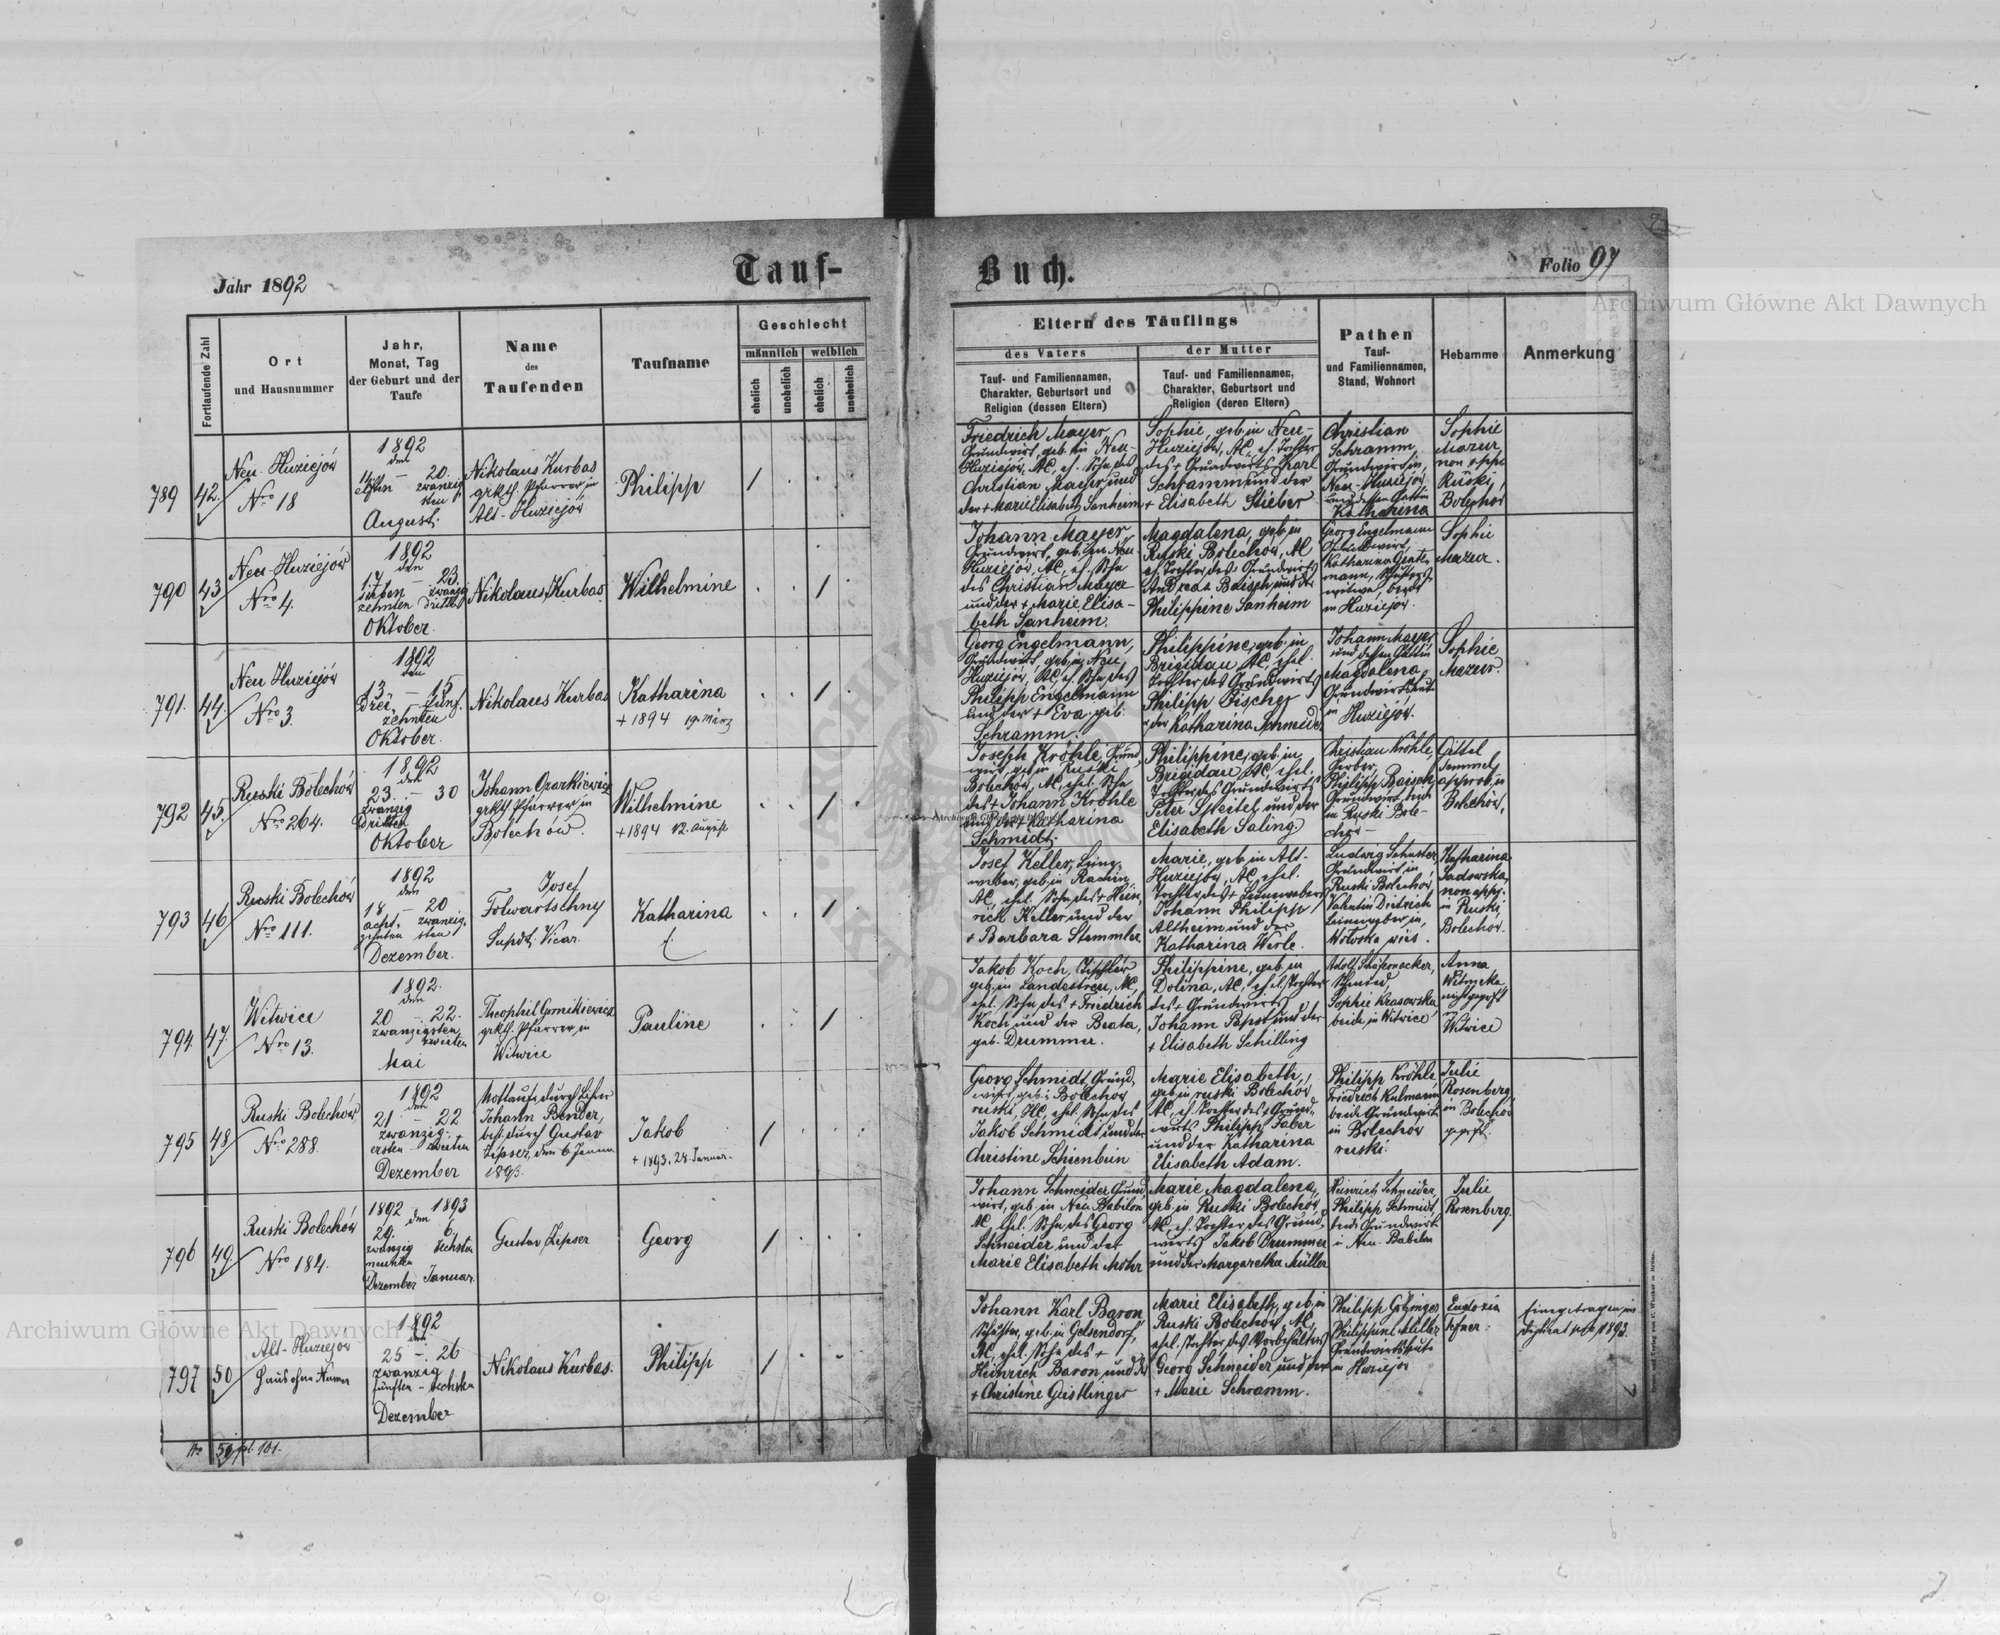 Jahr 1892
Tauf-
Buch.
Folio 97
Archiwum Główne Akt Dawnych
Fortlaufende Zahl
Ort
und Hausnummer
Jahr,
Monat, Tag
der Geburt und der
Taufe
Name
des
Taufenden
Taufname
Geschlecht
männlich
weiblich
ehelich
unehelich
ehelich
unehelich
Eltern des Täuflings
des Vaters
der Mutter
Tauf- und Familiennamen,
Charakter, Geburtsort und
Religion (dessen Eltern)
Tauf- und Familiennamen,
Charakter, Geburtsort und
Religion (deren Eltern)
Pathen
Tauf-
und Familiennamen,
Stand, Wohnort
Hebamme
Anmerkung
789
42.
Neu-Huziejów
Nro 18
1892
den
11. – 20.
elften zwanzig
sten
August.
Nikolaus Kurbas
grkth. Pfarrer in
Alt-Huziejów
Philipp
Friedrich Mayer,
Grundwirt, geb. in Neu-
Huziejów, AC, eh. Sohn des
Christian Mayer und
der + Marie Elisabeth Sanheim
Sophie, geb. in Neu-
Huziejów, AC, eh. Tochter
des + Grundwirts Karl
Schramm und der
+ Elisabeth Stieber
Christian
Schramm,
Grundwirt in
Neu-Huziejów
und dessen Gattin
Katharina
Sophie
Mazur
non appr.
Ruski
Bolechów
790
43
Neu-Huziejów
Nro 4.
1892
den
17. – 23.
sieben zwanzig
zehnten dritten
Oktober.
Nikolaus Kurbas
Wilhelmine
Johann Mayer
Grundwirt, geb. in Neu-
Huziejów, AC, eh. Sohn
des Christian Mayer
und der + Marie Elisa-
beth Sanheim.
Magdalena, geb. in
Ruski Bolechów, AC
eh. Tochter des Grundwirts
Andreas Baisch und der
Philippine Sanheim
Georg Engelmann
Grundwirt,
Katharina
mann,
witwe, beide
in Huziejów.
Sophie
Mazur.
791.
44.
Neu Huziejów
Nro 3.
1892
den
13. – 15.
drei- fünf-
zehnten
Oktober.
Nikolaus Kurbas
Katharina
+ 1894 19. März
Georg Engelmann,
Grundwirt, geb. in Neu
Huziejów, AC, eh. Sohn des
Philipp Engelmann
und der + Eva geb.
Schramm.
Philippine, geb. in
Brigidau, AC, ehel.
Tochter des Grundwirts
Philipp Fischer
u. der Katharina Schmidt
Johann Mayer,
und dessen Gattin
Magdalena,
Grundwirtsleute
in Huziejów.
Sophie
Mazur.
792
45.
Ruski Bolechów
Nro 264.
1892
den
23. – 30
zwanzig
dritten
Oktober
Johann Ozarkiewicz
grkth. Pfarrer in
Bolechów.
Wilhelmine
+ 1894 12. August
Joseph Kröhle, Grund
wirt, geb. in Ruski
Bolechów, AC, ehel. Sohn
des + Johann Kröhle
und der + Katharina
Schmidt.
Philippine, geb. in
Brigidau, AC, ehel.
Tochter des Grundwirts
Peter Speitel und der
Elisabeth Saling.
Christian Kröhle,
Gerber,
Philipp Baisch,
Grundwirt, beide
in Ruski Bole-
chów –
Gittel
Semmel
approb. in
Bolechów.
793
46
Ruski Bolechów
Nro 111.
1892
den
18. – 20
acht- zwanzig-
zehnten sten
Dezember.
Josef
Folwartschny
Supdt. Vicar.
Katharina
Josef Keller, Lein-
weber, geb. in
AC, ehel. Sohn des + Hein-
rich Keller und der
+ Barbara Stemmler.
Marie, geb. in Alt-
Huziejów, AC, ehel.
Tochter des + Leinwebers
Johann Philipp
Altheim und der
Katharina Werle.
Ludwig Schuster
Grundwirt in
Ruski Bolechów,
Valentin Dietrich
Leinweber in
Wołoska wieś.
Katharina
Sadowska,
non appr.
in Ruski
Bolechów.
794
47.
Witwice
Nro 13.
1892.
den
20 – 22.
zwanzigsten
zweiten
Mai
Theophil Gornikiewicz
grkth. Pfarrer in
Witwice
Pauline
Jakob Koch, Tischler
geb. in Landestreu, AC,
ehel. Sohn des + Friedrich
Koch und der Beata,
geb. Drummer.
Philippine, geb. in
Dolina, AC, ehel. Tochter
des + Grundwirts
Johann Papst und der
+ Elisabeth Schilling
Adolf
Sophie Krasowska,
beide in Witwice
Anna
nicht geprft
in
Witwice
795
48
Ruski Bolechów
Nro 288.
1892
den
21 – 22
zwanzig-
ersten zweiten
Dezember
Nottaufe durch Lehrer
Johann Bender,
best. durch Gustav
Zipser, den 6. Januar
1893.
Jakob
+ 1893. 28. Januar.
Georg Schmidt, Grund-
wirt, geb. in Bolechow
ruski, HC, ehel. Sohn des
Jakob Schmidt und der
Christine Schienbein
Marie Elisabeth,
geb. in ruski Bolechów
AC, eh. Tochter des + Grund-
wirts Philipp Faber
und der Katharina
Elisabeth Adam.
Philipp Kröhle
Friedrich Kulmann
beide Grundwirte
in Bolechow
ruski.
Julie
Rosenberg,
in Bolechow
geprft.
796
49.
Ruski Bolechów
Nro 184.
1892 1893
den
29. 6.
zwanzig sechsten
neunten
Dezember Januar.
Gustav Zipser
Georg
Johann Schneider Grund
wirt, geb. in Neu Babilon
AC, ehel. Sohn des Georg
Schneider und der
Marie Elisabeth Mohr
Marie Magdalena,
geb. in Ruski Bolechów,
AC, eh. Tochter des Grund-
wirts Jakob Drummer
und der Margaretha Müller
Heinrich Schneider,
Philipp Schmidt,
beide Grundwirte
in Neu-Babilon
Julie
Rosenberg.
797
50
Alt-Huziejów
Haus ohne Numer
1892
den
25 – 26
zwanzig
fünften – sechsten
Dezember
Nikolaus Kurbas.
Philipp
Johann Karl Baron
Schuster, geb. in Gelsendorf,
AC, ehel. Sohn des +
Heinrich Baron und der
+ Christine Geistlinger
Marie Elisabeth, geb. in
Ruski Bolechów, AC,
ehel. Tochter des Vorbehälters
Georg Schneider und der
+ Marie Schramm.
Philipp
Philippine Miller
Grundwirtsleute
in Huziejów
Eudozia
Eingetragen im
Duplicat pro 1893.
Archiwum Główne Akt Dawnych
Archiwum Główne Akt Dawnych